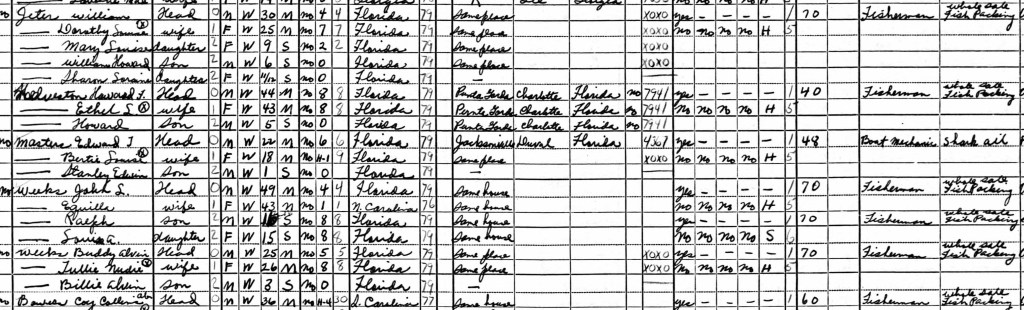 Jeter William Head 0 M W 30 M no 4 4 Florida 79 Same place XOXO yes – – – – 1 70 Fisherman whole sale Fish Packing
— Dorothy Louise wife 1 F W 25 M no 7 7 Florida 79 Same place XOXO no no no no H 5
— Mary Louise daughter 2 F W 9 S no 2 2 Florida 79 Same place XOXO
— William Howard son 2 M W 6 S no 0 Florida 79 Same place XOXO
— Sharon Loraine daughter 2 F W 4/12 S no 0 Florida 79 —
Howard F. Head 0 M W 44 M no 8 8 Florida 79 Punta Gorda Charlotte Florida no 7941 yes – – – – 1 40 Fisherman whole sale Fish Packing
— Ethel L wife 1 F W 43 M no 8 8 Florida 79 Punta Gorda Charlotte Florida no 7941 no no no no H 5
— Howard son 2 M W 5 S no 0 Florida 79 Punta Gorda Charlotte Florida no 7941
no Masters Edward J Head 0 M W 22 M no 6 6 Florida 79 Jacksonville Duval Florida yes – – – – 1 48 Boat Mechanic Shark oil
— Bertie Louise wife 1 F W 18 M no H-1 9 Florida 79 Same place XOXO no no no no H 5
— Stanley Edwin son 2 M W 1 S no 0 Florida 79
no Weeks John L. Head 0 M W 49 M no 4 4 Florida 79 Same house yes – – – – 1 70 Fisherman whole sale Fish Packing
— Equilla wife 1 F W 43 M no 1 1 N. Carolina 76 Same house no no no no H 5
— Ralph son 2 M W S no 8 8 Florida 79 Same house yes – – – – 1 70 Fisherman whole sale Fish Packing
— Louise A. daughter 2 F W 15 S no 8 8 Florida 79 Same house no no no no S 6
no Weeks Buddy Alvin Head 0 M W 25 M no 5 5 Florida 79 Same place XOXO yes – – – – 1 70 Fisherman whole sale Fish Packing
— Tullie wife 1 F W 26 M no 8 8 Florida 79 Same place XOXO no no no no H 5
— Billie Alvin son 2 M W 3 S no 0 Florida 79 —
no Coy Head 0 M W 36 M no H-4 30 S. Carolina 77 Same house yes – – – – 1 60 Fisherman whole sale Fish Packing